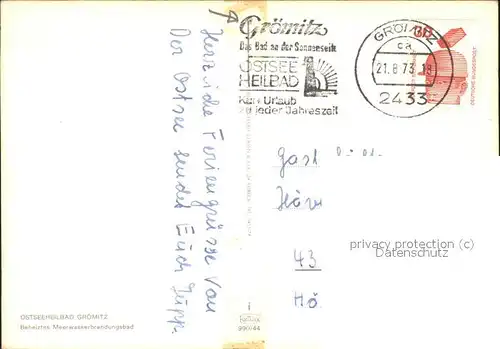 Grömitz
Das Bad an der Sonnenseite
OSTSEE
HEILBAD
Kur + Urlaub
zu jeder Jahreszeit
GRÖMITZ
ca
21.8.73-18
2433
DEUTSCHE BUNDESPOST
Herzliche Feriengrüsse von
Der Ostsee sendet Euch Jupp.
Gast
43
Hö
privacy protection (c)
Datenschutz
OSTSEEHEILBAD GRÖMITZ
Beheiztes Meerwasserbrandungsbad
990/44